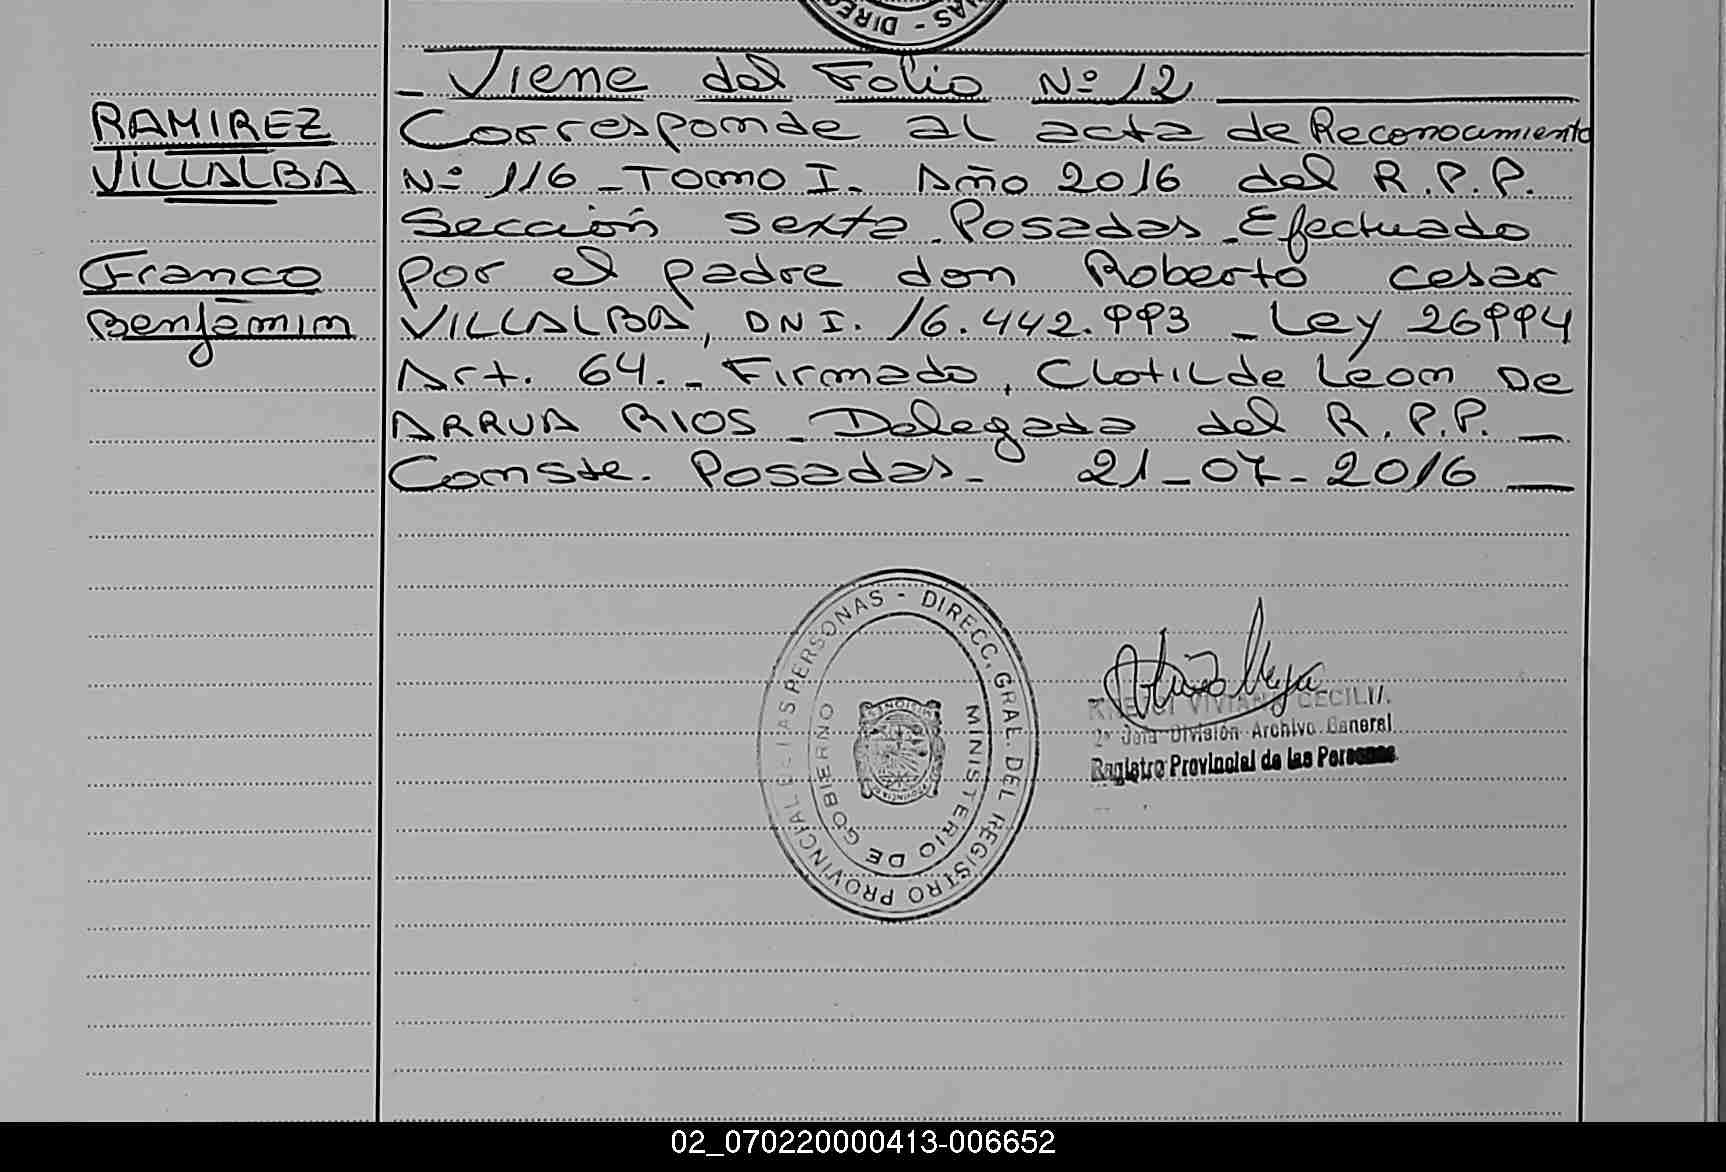 - Viene del Folio Nº 12
RAMIREZ
VILLALBA
Franco
Benjamin
Corresponde al acta de Reconocimiento
Nº 116 - Tomo I. Año 2016 del R.P.P.
Sección Sexta Posadas - Efectuado
por el padre don Roberto Cesar
VILLALBA, DNI. 16.442.993 - Ley 26994
Art. 64. - Firmado, Clotilde Leon DE
ARRUA RIOS - Delegada del R.P.P. -
Conste. Posadas - 21-07-2016 -
DIRECC. GRAL. DEL REGISTRO PROVINCIAL DE LAS PERSONAS -
MINISTERIO DE GOBIERNO
CECILIA
División Archivo General
Registro Provincial de las Personas
02_070220000413-006652